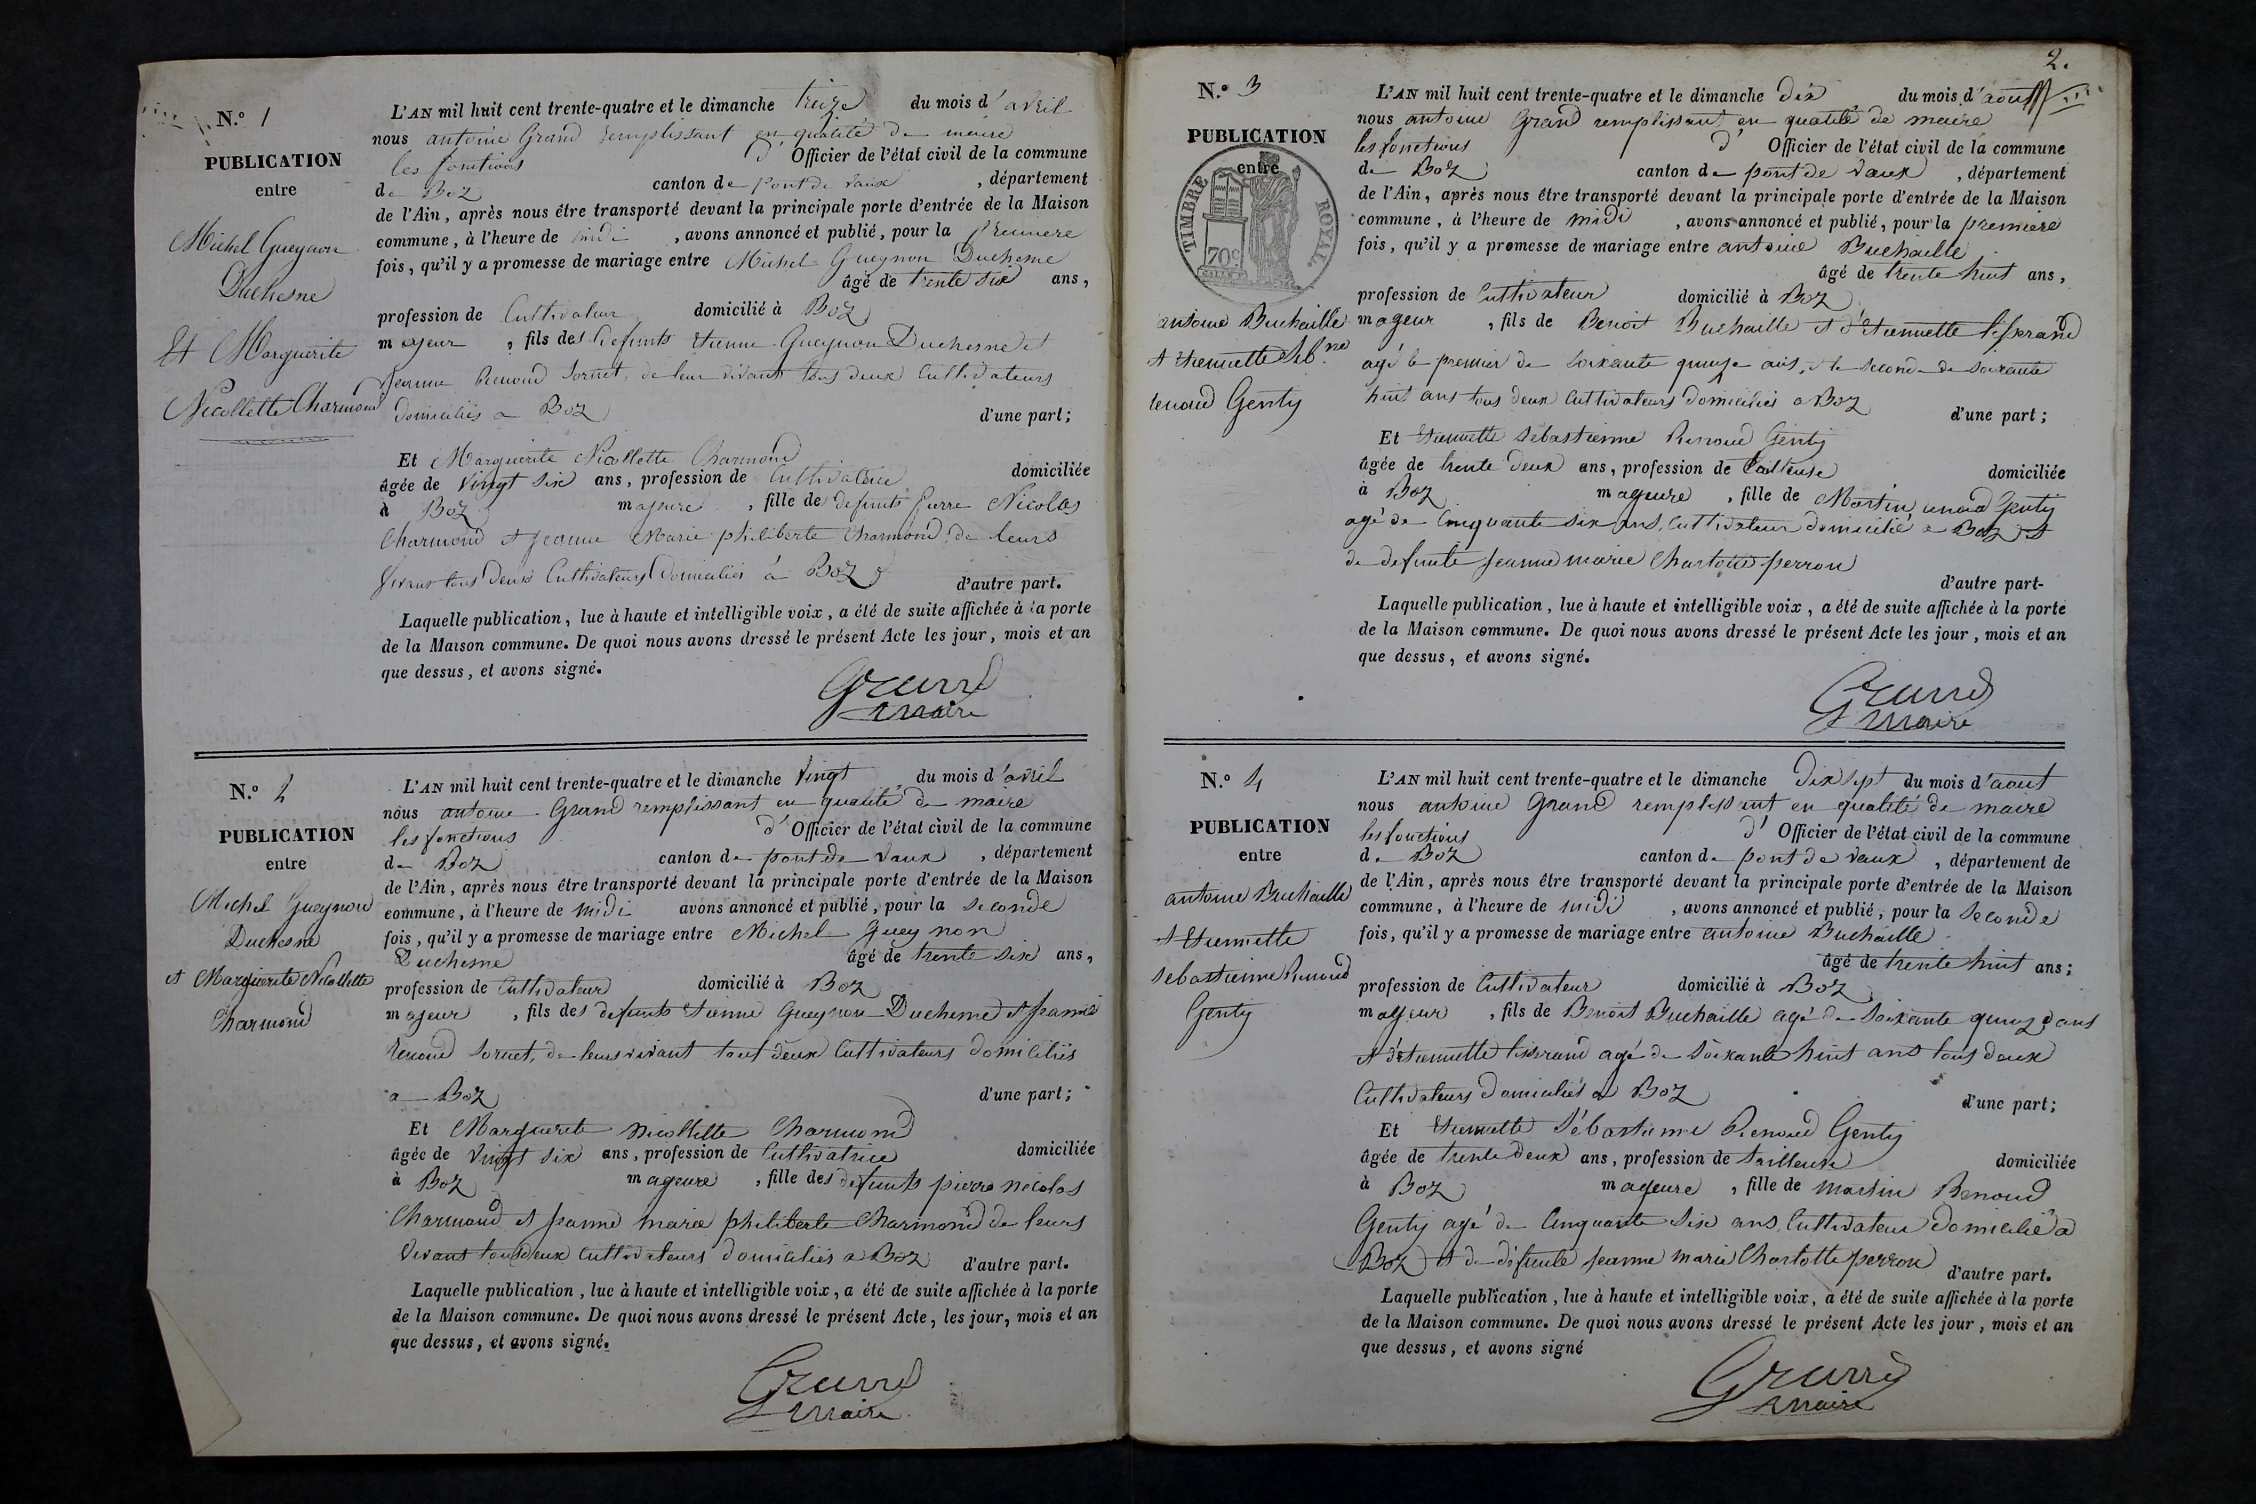 N.º 1
PUBLICATION
entre
Michel Gueynon
Duchesne
Et Marguerite
Nicollette Charmond
L'AN mil huit cent trente-quatre et le dimanche treize du mois d'avril
nous antoine Grand remplissant en qualité de maire
les fonctions d'Officier de l'état civil de la commune
de Boz canton de pont de vaux , département
de l'Ain, après nous être transporté devant la principale porte d'entrée de la Maison
commune, à l'heure de midi , avons annoncé et publié, pour la premiere
fois, qu'il y a promesse de mariage entre Michel Gueynon Duchesne
âgé de trente six ans,
profession de Cultivateur domicilié à Boz
majeur , fils des defunts Etienne Gueynon Duchesne et
Jeanne Renoud Sornet, de leur vivant tous deux Cultivateurs
domiciliés a Boz d'une part;
Et Marguerite Nicollette Charmond
âgée de vingt six ans, profession de Cultivatrice domiciliée
à Boz majeure , fille des defunts pierre Nicolas
Charmond et Jeanne Marie philiberte Charmond de leurs
vivant tous deux Cultivateurs domiciliés à Boz d'autre part.
Laquelle publication, lue à haute et intelligible voix, a été de suite affichée à la porte
de la Maison commune. De quoi nous avons dressé le présent Acte les jour, mois et an
que dessus, et avons signé.
Grand
maire
N.º 2
PUBLICATION
entre
Michel Gueynon
Duchesne
et Marguerite Nicollette
Charmond
L'AN mil huit cent trente-quatre et le dimanche vingt du mois d'avril
nous antoine Grand remplissant en qualité de maire
les fonctions d'Officier de l'état civil de la commune
de Boz canton de pont de vaux , département
de l'Ain, après nous être transporté devant la principale porte d'entrée de la Maison
commune, à l'heure de midi avons annoncé et publié, pour la seconde
fois, qu'il y a promesse de mariage entre Michel Gueynon
Duchesne âgé de trente six ans,
profession de Cultivateur domicilié à Boz
majeur , fils des defunts Etienne Gueynon Duchesne et Jeanne
Renoud Sornet, de leurs vivant tout deux Cultivateurs domiciliés
a Boz d'une part;
Et Marguerite Nicollette Charmond
âgée de vingt six ans, profession de Cultivatrice domiciliée
à Boz mageure , fille des defunts pierre Nicolas
Charmond et Jeanne marie philiberte Charmond de leurs
vivant tous deux cultivateurs domiciliés a Boz d'autre part.
Laquelle publication, lue à haute et intelligible voix, a été de suite affichée à la porte
de la Maison commune. De quoi nous avons dressé le présent Acte, les jour, mois et an
que dessus, et avons signé.
Grand
maire
2.
N.º 3
PUBLICATION
entre
TIMBRE ROYAL
70c
antoine Buchaille
et Etiennette Seb.ne
renoud Genty
L'AN mil huit cent trente-quatre et le dimanche dix du mois d'aout
nous antoine Grand remplissant en qualité de maire
les fonctions d'Officier de l'état civil de la commune
de Boz canton de pont de vaux , département
de l'Ain, après nous être transporté devant la principale porte d'entrée de la Maison
commune, à l'heure de midi , avons annoncé et publié, pour la premiere
fois, qu'il y a promesse de mariage entre antoine Buchaille
âgé de trente huit ans,
profession de Cultivateur domicilié à Boz
mageur , fils de Benoit Buchaille et d'Etiennette tisserand
agé le premier de soixante quinze ans, et la seconde de soixante
huit ans tous deux Cultivateurs domiciliés a Boz d'une part;
Et Etiennette Sébastienne Renoud Genty
âgée de trente deux ans, profession de tailleuse domiciliée
à Boz mageure , fille de Martin renoud Genty
agé de Cinquante six ans, Cultivateur domicilié a Boz et
de defunte Jeanne marie Charlotte perron
d'autre part-
Laquelle publication, lue à haute et intelligible voix, a été de suite affichée à la porte
de la Maison commune. De quoi nous avons dressé le présent Acte les jour, mois et an
que dessus, et avons signé.
Grand
maire
N.º 4
PUBLICATION
entre
antoine Buchaille
et Etiennette
sebastienne Renoud
Genty
L'AN mil huit cent trente-quatre et le dimanche dix sept du mois d'aout
nous antoine Grand remplissant en qualité de maire
les fonctions d'Officier de l'état civil de la commune
de Boz canton de pont de vaux , département de
de l'Ain, après nous être transporté devant la principale porte d'entrée de la Maison
commune, à l'heure de midi , avons annoncé et publié, pour la seconde
fois, qu'il y a promesse de mariage entre antoine Buchaille
âgé de trente huit ans;
profession de Cultivateur domicilié à Boz
majeur , fils de Benoit Buchaille agé de soixante quinze ans
et d'Etiennette tisserand agé de soixante huit ans tous deux
Cultivateurs domiciliés a Boz d'une part;
Et Etiennette Sébastienne Renoud Genty
âgée de trente deux ans, profession de tailleuse domiciliée
à Boz mageure , fille de martin Renoud
Genty agé de Cinquante six ans Cultivateur domicilié a
Boz et de défunte Jeanne marie Charlotte perron d'autre part.
Laquelle publication, lue à haute et intelligible voix, a été de suite affichée à la porte
de la Maison commune. De quoi nous avons dressé le présent Acte les jour, mois et an
que dessus, et avons signé
Grand
maire